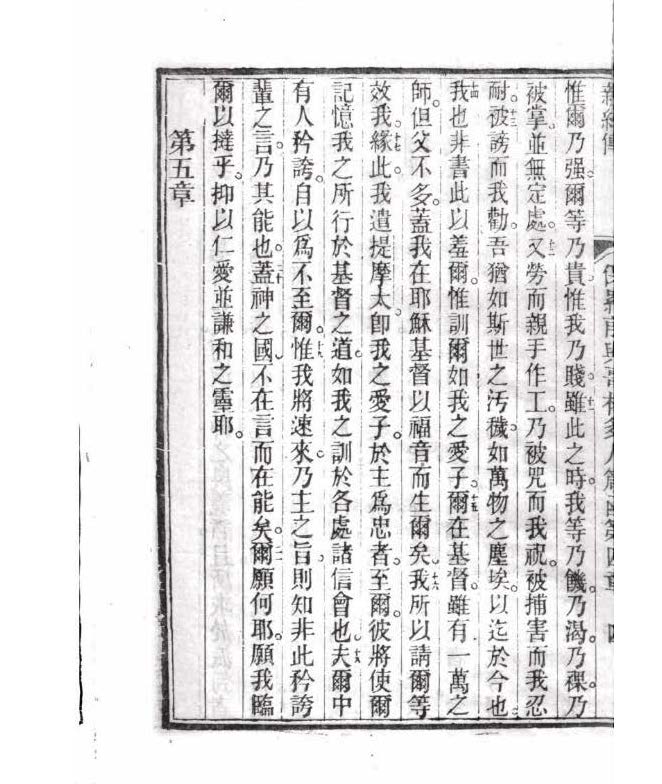 新約傳 保羅前與書林多人篇第四章 四
惟爾乃强。爾等乃貴惟我乃賤。十一雖此之時我等乃饑。乃渴。乃裸乃
被掌。並無定處。十二又勞而親手作工。乃被咒而我祝。被捕害而我忍
耐。十三被謗而我勸。吾猶如斯世之汚穢。如萬物之塵埃。以迄於今也
十四我也非書此以羞爾。惟訓爾如我之愛子。十五爾在基督。雖有一萬之
師。但父不多。蓋我在耶穌基督以福音而生爾矣。十六我所以請爾等
效我。十七緣此。我遣提摩太卽我之愛子。於主爲忠者。至爾。彼將使爾
記憶我之所行於基督之道。如我之訓於各處諸信會也。十八夫爾中
有人矜誇。自以爲不至爾。十九惟我將速來。乃主之旨。則知非此矜誇
輩之言。乃其能也。二十蓋神之國不在言而在能矣。二一爾願何耶。願我臨
爾以撻乎。抑以仁愛並謙和之靈耶。
第五章